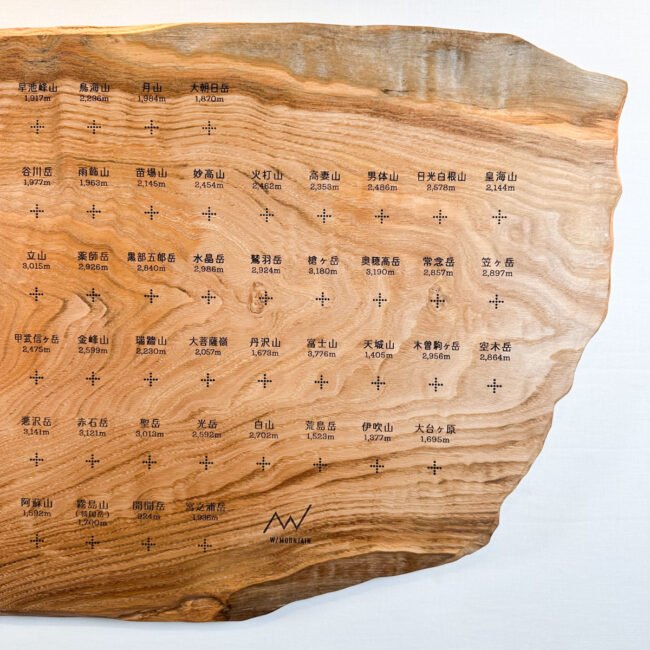 早池峰山 鳥海山 月山 大朝日岳
1,917m 2,236m 1,984m 1,870m
谷川岳 雨飾山 苗場山 妙高山 火打山 高妻山 男体山 日光白根山 皇海山
1,977m 1,963m 2,145m 2,454m 2,462m 2,353m 2,486m 2,578m 2,144m
立山 薬師岳 黒部五郎岳 水晶岳 鷲羽岳 槍ヶ岳 奥穂高岳 常念岳 笠ヶ岳
3,015m 2,926m 2,840m 2,986m 2,924m 3,180m 3,190m 2,857m 2,897m
甲武信ヶ岳 金峰山 瑞牆山 大菩薩嶺 丹沢山 富士山 天城山 木曽駒ヶ岳 空木岳
2,475m 2,599m 2,230m 2,057m 1,673m 3,776m 1,405m 2,956m 2,864m
悪沢岳 赤石岳 聖岳 光岳 白山 荒島岳 伊吹山 大台ヶ原
3,141m 3,121m 3,013m 2,592m 2,702m 1,523m 1,377m 1,695m
阿蘇山 霧島山 開聞岳 宮之浦岳
1,592m (韓国岳) 924m 1,936m
1,700m
W/MOUNTAIN